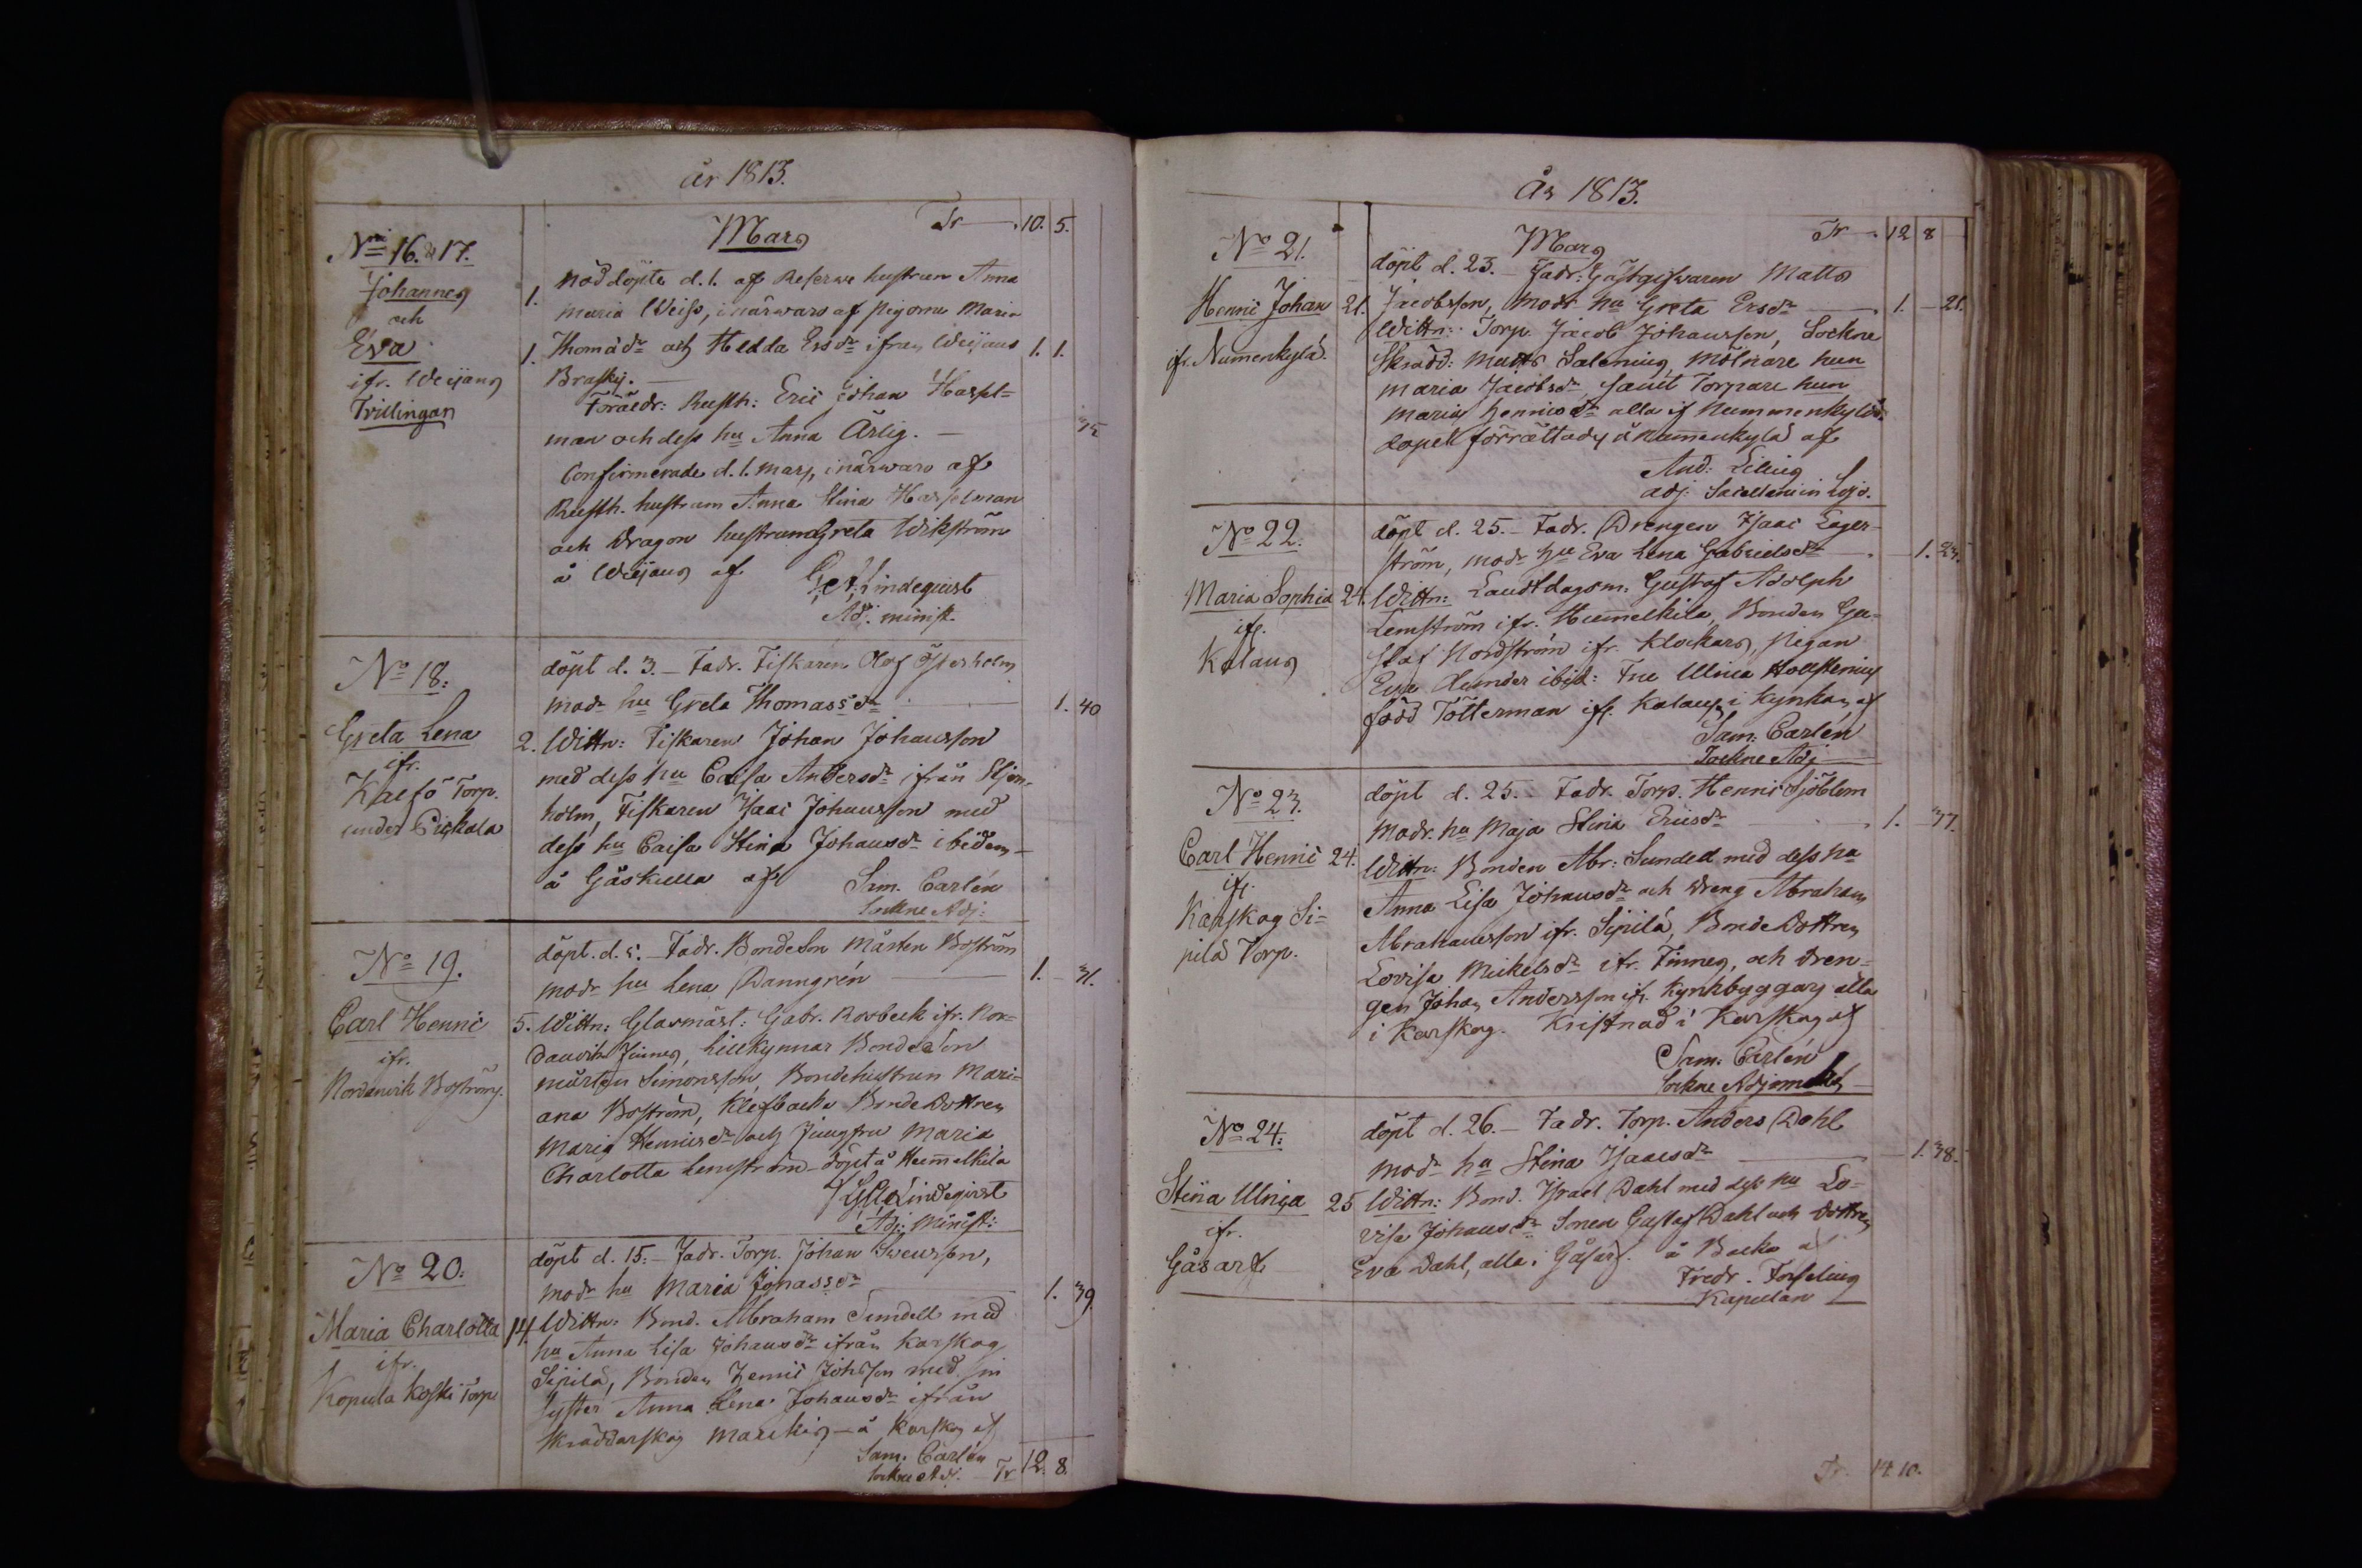 År 1813.
Mars Tr 10. 5.
Nris 16. & 17.
Johannes
och
Eva
ifr. Weijans
Trillingar
1. nöddöpte d. 1. af Reserwe hustrun Anna
Maria Weiss, i närwaro af pigorna Maria
1. Thomædr och Hedda Ersdr ifrån Weijans 1. 1.
Brasky.
Föräldr: Rusth: Eric Johan Hassel=
man och dess hu Anna Ärlig. — 35
Confirmerade d. 1. Mars, i närwaro af
Rusth. hustrun Anna Stina Hasselman
och Dragon hustrun Greta Wikström
å Weijans af
G. A. Lindequist
Adj. minist.
No 18.
Greta Lena
ifr.
Kalfö Torp.
under Pickala
döpt d. 3. — Fadr. Fiskaren Olof Österholm
modr hu Greta Thomassdr 1. 40
2. Wittn: Fiskaren Johan Johansson
med dess hu Caisa Andersdr ifrån
holm, Fiskaren Isaac Johansson med
dess hu Caisa Stina Johansdr ibidem —
å Gåskulla af Sam. Carlén
Sockne Adj:
No 19.
Carl Henric
ifr.
Nordanvik Boströms.
döpt. d. 5. — Fadr. Bondeson Mårten Boström
modr hu Lena Danngrén 1. 31.
5. Wittn: Glasmäst: Gabr. Rosbeck ifr. Nor=
danvik Finnes, Lillkynnar Bondeson
Mårten Simonsson, Bondehustrun Mari=
ana Boström, Klefbacka Bonde Dottren
Maria Henricsdr och Jungfru Maria
Charlotta Lemström — döpt å Hummelkila
af G. A. Lindequist
Adj. Minist:
No 20.
Maria Charlotta
ifr.
Kopula Koski Torp
döpt d. 15. — Fadr. Torp. Johan Svensson,
modr hu Maria Jonassdr 1. 39
14. Wittn: Bond. Abraham Sundell med
hu Anna Lisa Johansdr ifrån Karskog
Sipilä, Bonden Henric Johsson med sin
Syster Anna Lena Johansdr ifrån
Skräddarskog — å Karskog af
Sam. Carlén
Sockne Adj. — Tr 12. 8.
År 1813.
Mars Tr 12 8
No 21.
Henric Johan
ifr. Nummenkylä.
döpt d. 23. — Fadr. Gästgifwaren Matts
21. Jacobsson, Modr hu Greta Ersdr 1. — 21.
Wittn: Torp. Jacob Johansson, Sockne
Skrädd: Matts Salenius, Mölnare hun
Maria Jacobsdr samt Torpare hun
Maria Henricsdr alla if Nummenkylä.
dopet förrättades å Nummenkylä af
And: Lilius
adj. Sacellani in Lojo.
No 22.
Maria Sophia
ifr.
Kalans
döpt d. 25. — Fadr. Drengen Isaac Lager=
ström, modr hu Eva Lena Gabrielsdr — 1. 23.
24. Wittn: Landtdagsm: Gustaf Adolph
Lemström ifr. Hummelkila, Bonden Gu=
staf Nordström ifr. Klockars, Pigan
Eva Lunder ibid: Fru Ulrica Hollstenius
född Tötterman ifr. Kalans, i Kynkan, af
Sam: Carlén
Sockne Adj
No 23.
Carl Henric
ifr.
Karskog Si=
pilä Torp.
döpt d. 25. — Fadr. Torp. Henric Sjöblom
Modr. hu Maja Stina Ericsdr 1. 37.
24. Wittn: Bonden Abr: Sundell med dess hu
Anna Lisa Johansdr och Dreng Abraham
Abrahamsson ifr. Sipilä, Bonde Dottren
Lovisa Mickelsdr ifr. Finnes, och dren=
gen Johan Andersson ifr. Kynkbyggars alla
i Karskog. Kristnad i Karskog af
Sam: Carlén
Sockne Adjunct
No 24.
Stina Ulrica
ifr.
Gåsarf
döpt d. 26. — Fadr. Torp. Anders Dahl
modr hu Stina Isaacsdr — 1. 38.
25 Wittn: Bond. Israel Dahl med dess hu Lo=
visa Johansdr Sonen Gustaf Dahl och Dottren
Eva Dahl, alla i Gåsarf. å Backa af
Fredr. Forselius
Kapellan
Tr. 14. 10.